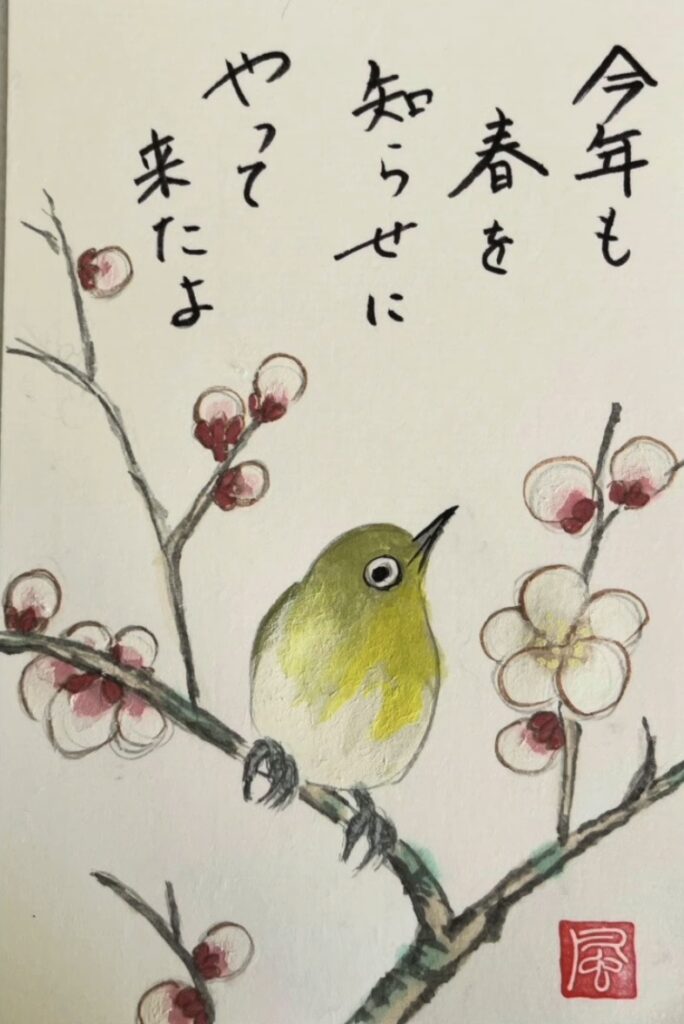 今年も
春を
知らせに
やって
来たよ
風